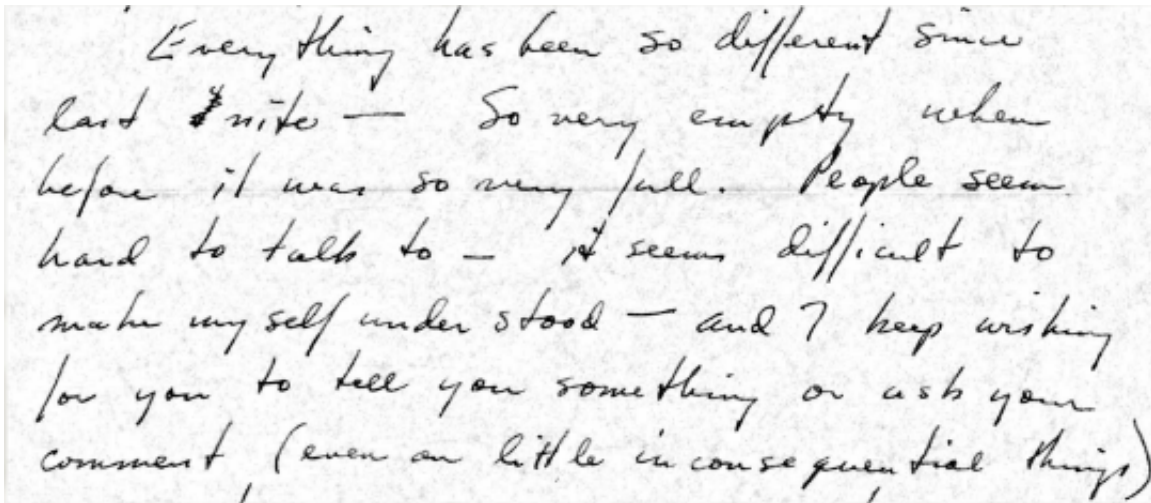 Everything has been so different since
last nite — So very empty when
before it was so very full. People seem
hard to talk to — it seems difficult to
make myself understood — and I keep wishing
for you to tell you something or ask your
comment (even on little inconsequential things)